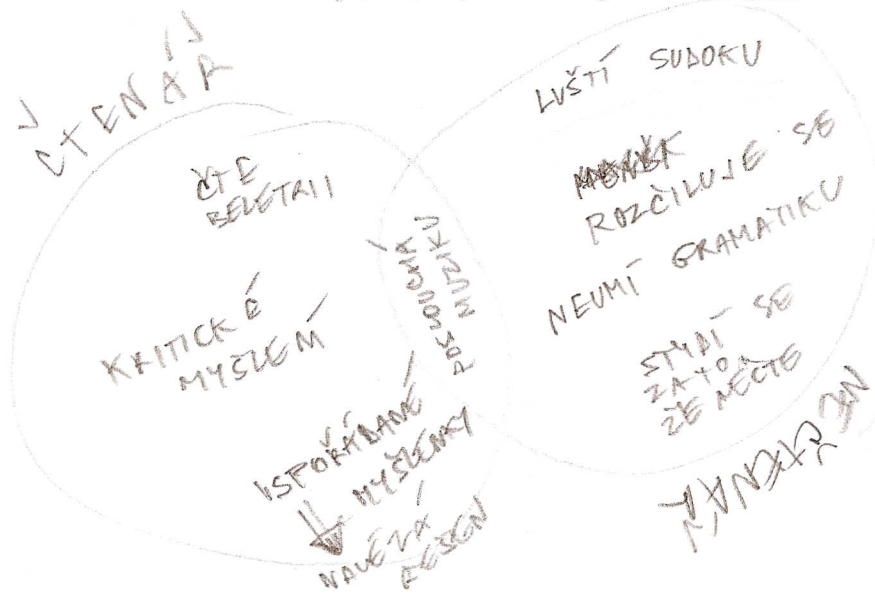 ČTENÁŘ
ČTE
BELETRII
KRITICKÉ
MYŠLENÍ
USPOŘÁDANÉ
MYŠLENKY
NALÉZÁ
ŘEŠENÍ
POSLOUCHÁ
MUZIKU
LUŠTÍ SUDOKU
ROZČILUJE SE
NEUMÍ GRAMATIKU
STYDÍ SE
ZA TO,
ŽE NEČTE
NEČTENÁŘ